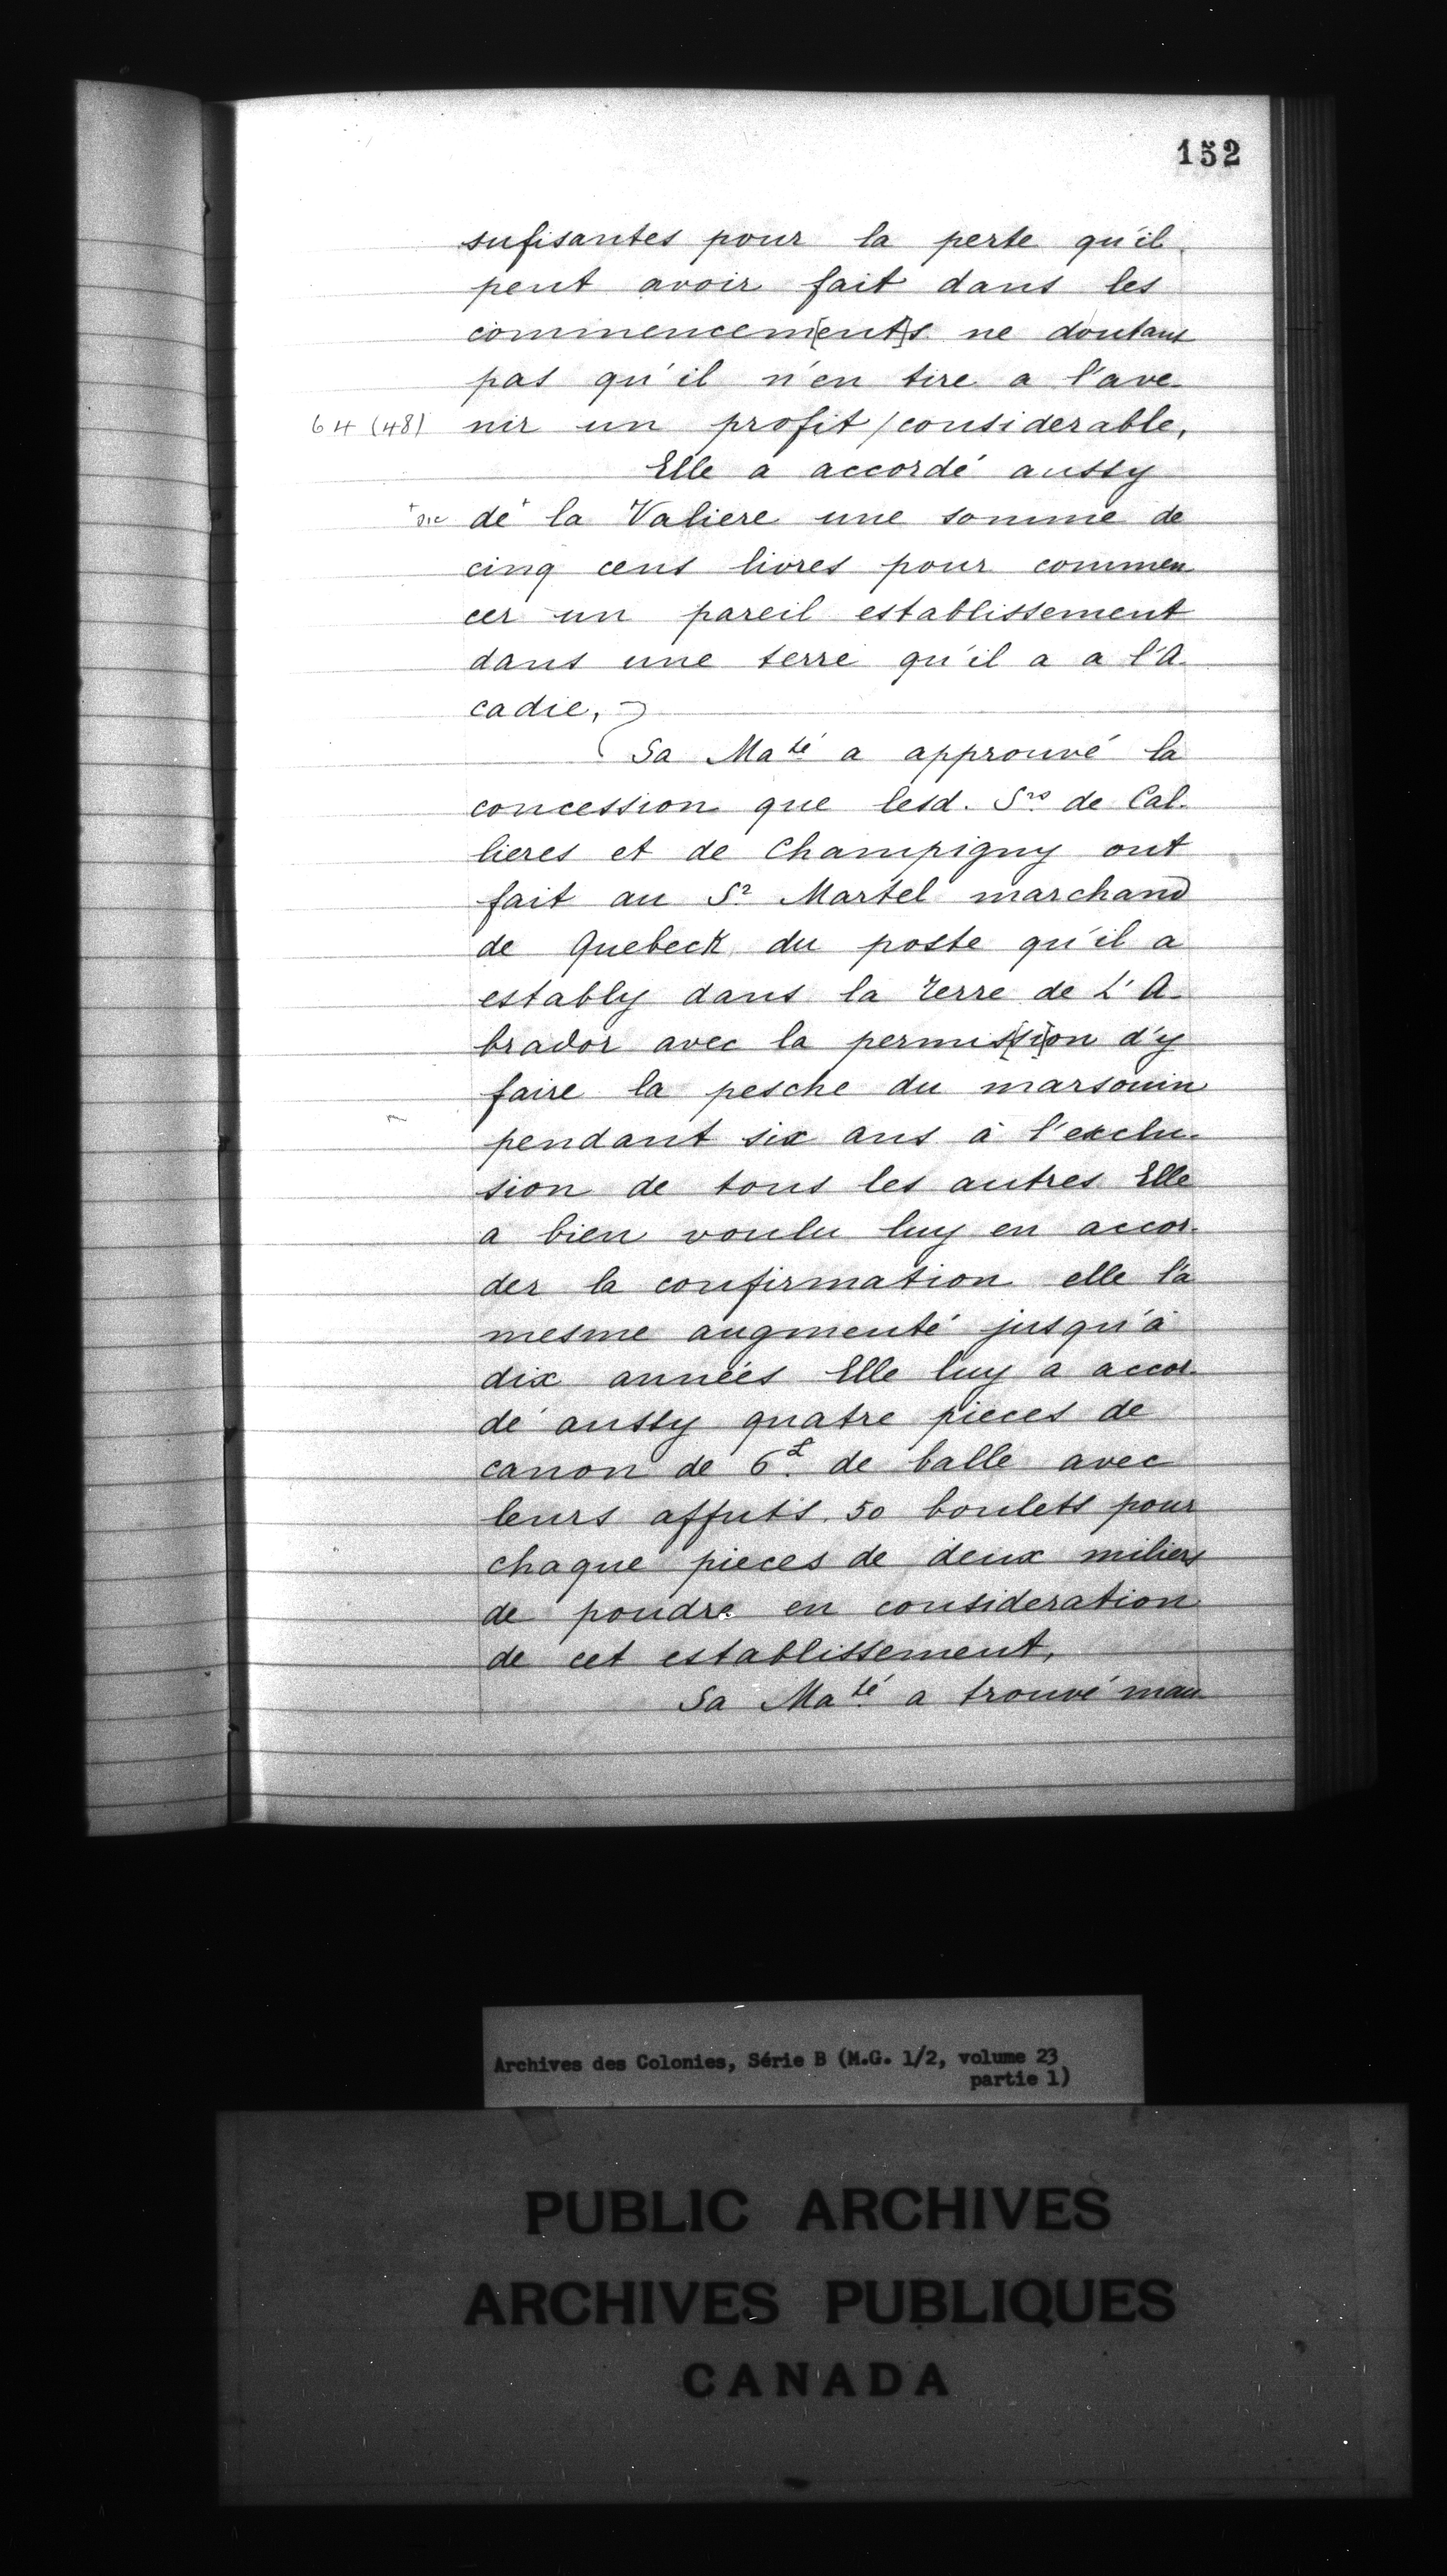 152
sufisantes pour la perte qu'il
peut avoir fait dans les
commencem[ent]s ne doutant
pas qu'il n'en tire a l'ave-
64 (48) nir un profit / considerable,
Elle a accordé aussy
+ sic de + la Valiere une somme de
cinq cens livres pour commen
cer un pareil establissement
dans une terre qu'il a a l'A-
cadie,
Sa Maté a approuvé la
concession que lesd. Srs de Cal-
lieres et de Champigny ont
fait au Sr Martel marchand
de Quebeck du poste qu'il a
estably dans la Terre de L'A-
brador avec la permis[si]on d'y
faire la pesche du marsouin
pendant six ans à l'exclu-
sion de tous les autres Elle
a bien voulu luy en accor-
der la confirmation elle l'a
mesme augmenté jusqu'à
dix années Elle luy a accor-
dé aussy quatre pieces de
canon de 6£ de balle avec
leurs affuts. 50 boulets pour
chaque pieces de deux miliers
de poudre en consideration
de cet establissement,
Sa Maté a trouvé mau-
Archives des Colonies, Série B (M.G. 1/2, volume 23
partie 1)
PUBLIC ARCHIVES
ARCHIVES PUBLIQUES
CANADA